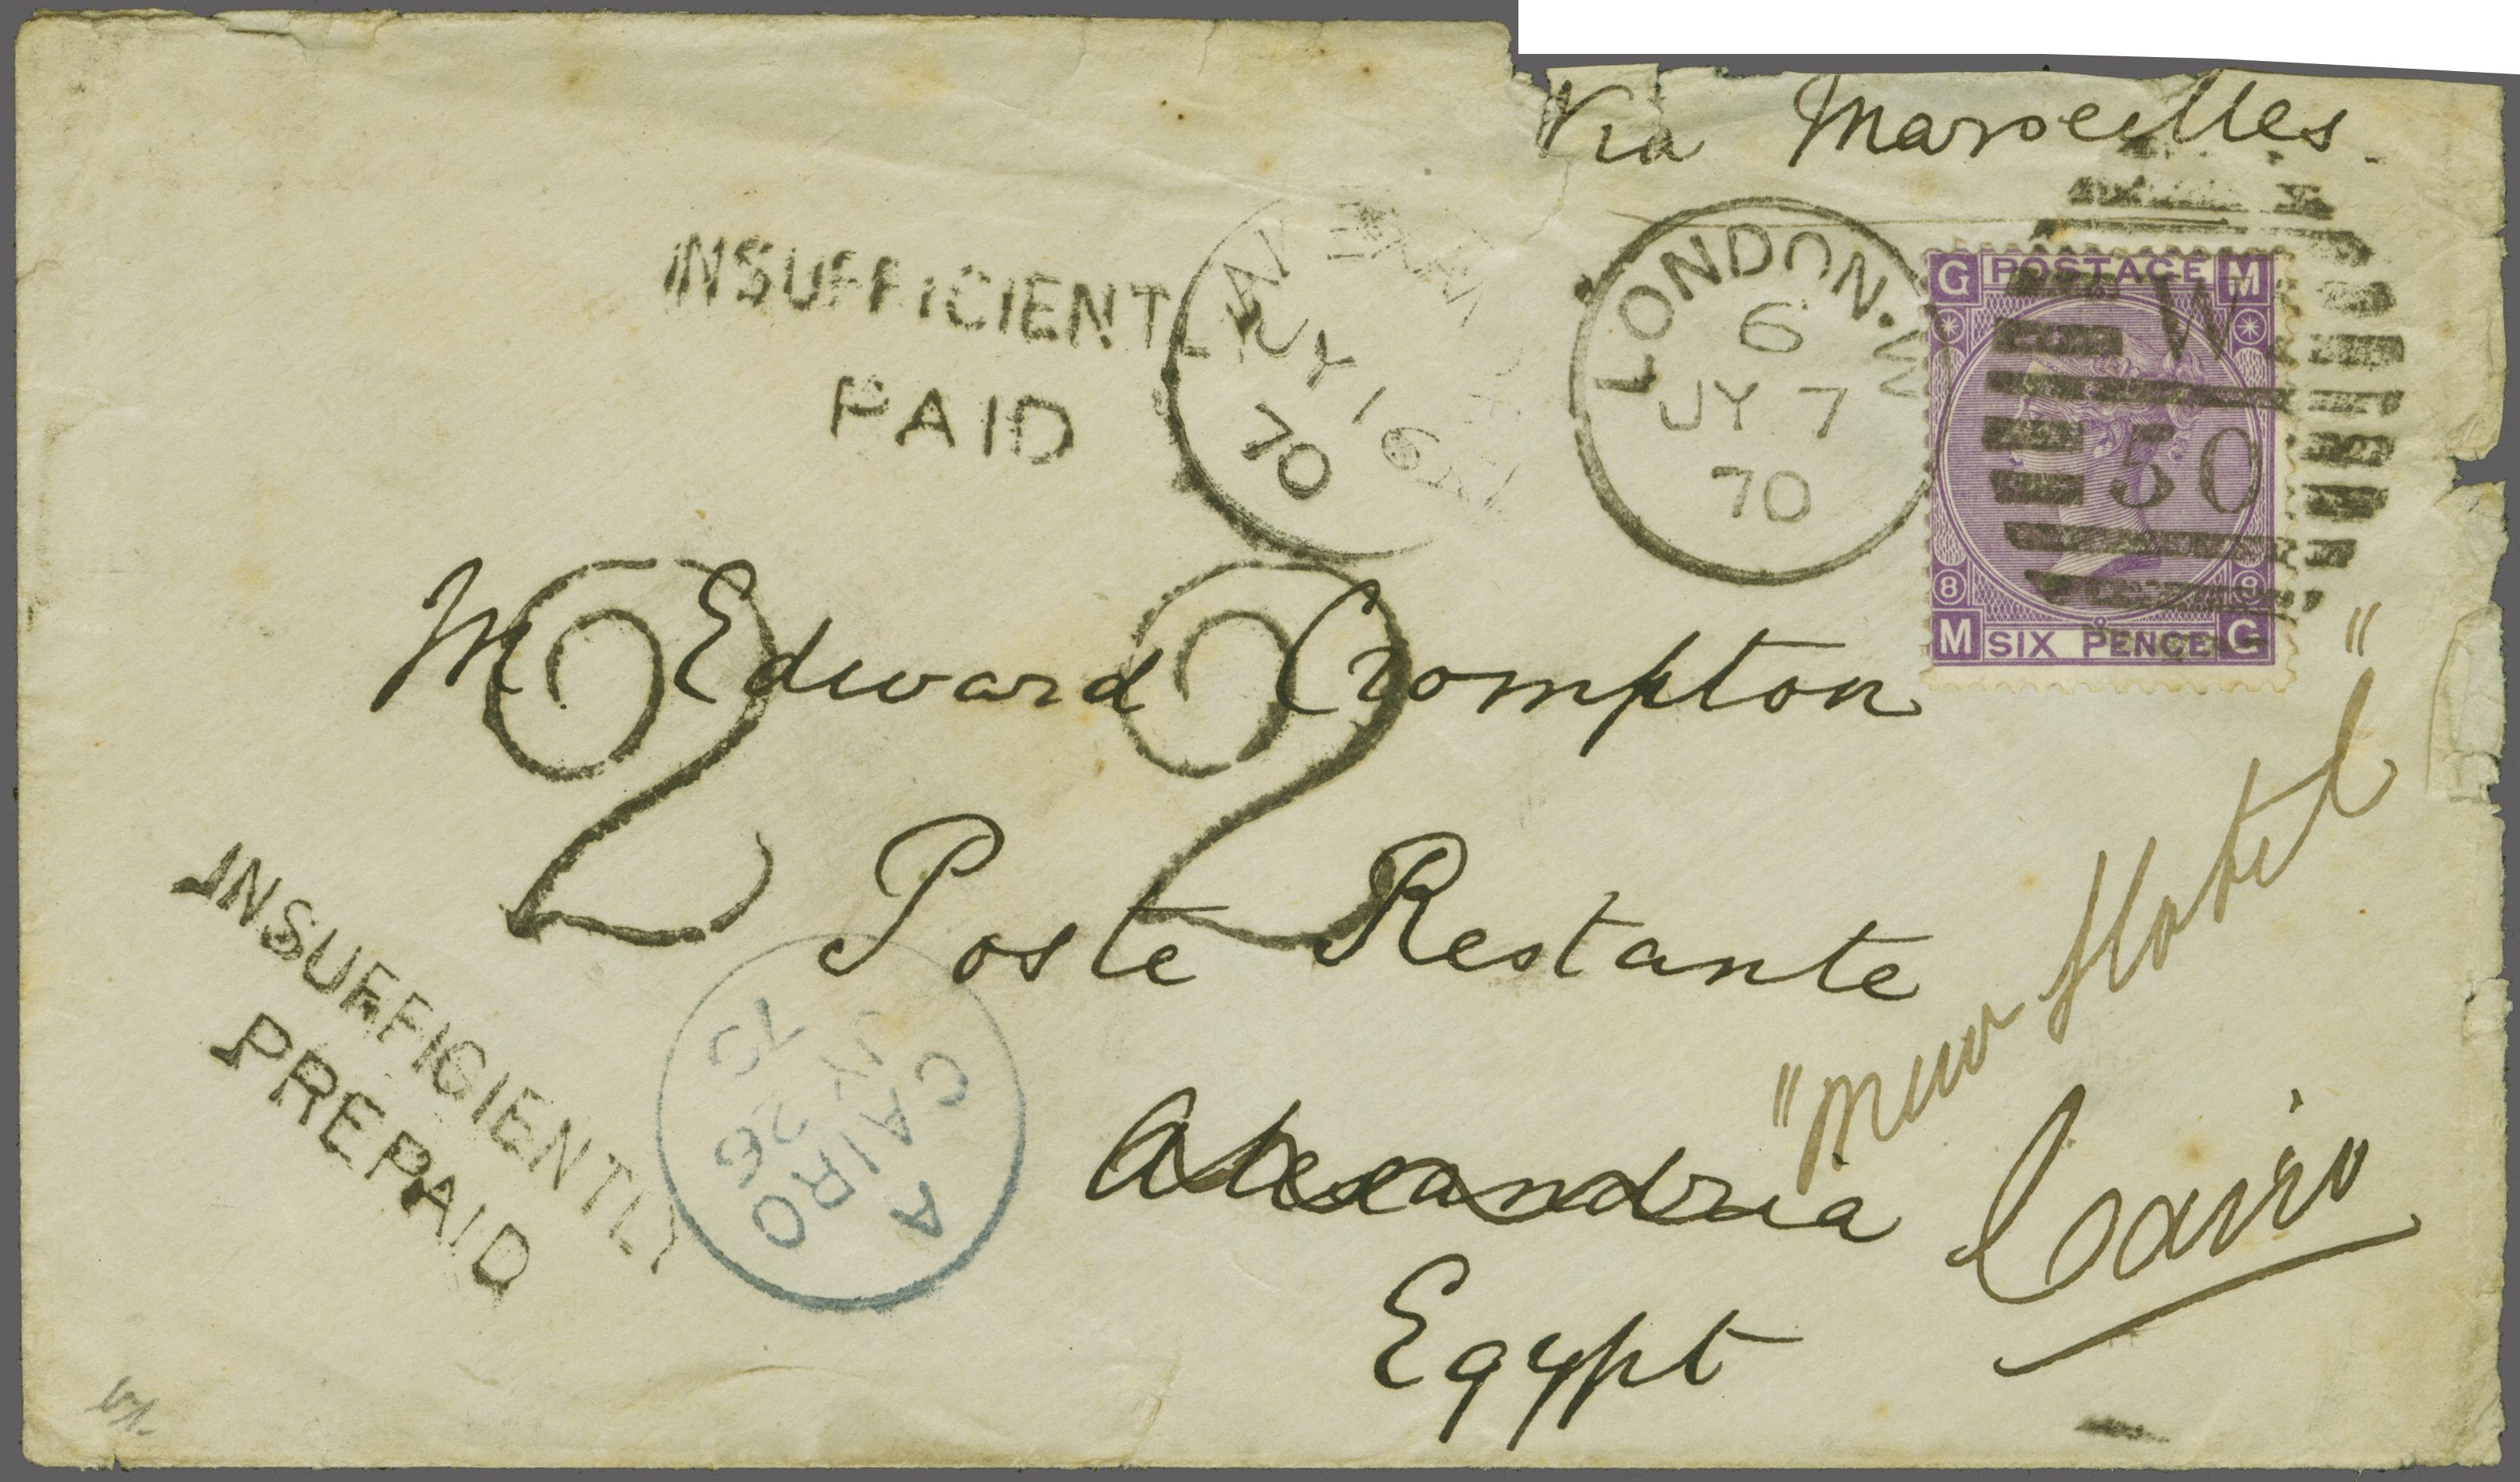 Via Marseilles
INSUFFICIENTLY
PAID
JY 16
70
LONDON. W
6
JY 7
70
W
50
G POSTAGE M
8 8
M SIX PENCE G
2 2
M Edward Crompton
Poste Restante
Alexandria
Egypt
" Hotel"
Cairo
INSUFFICIENTLY
PREPAID
A
CAIRO
JY 26